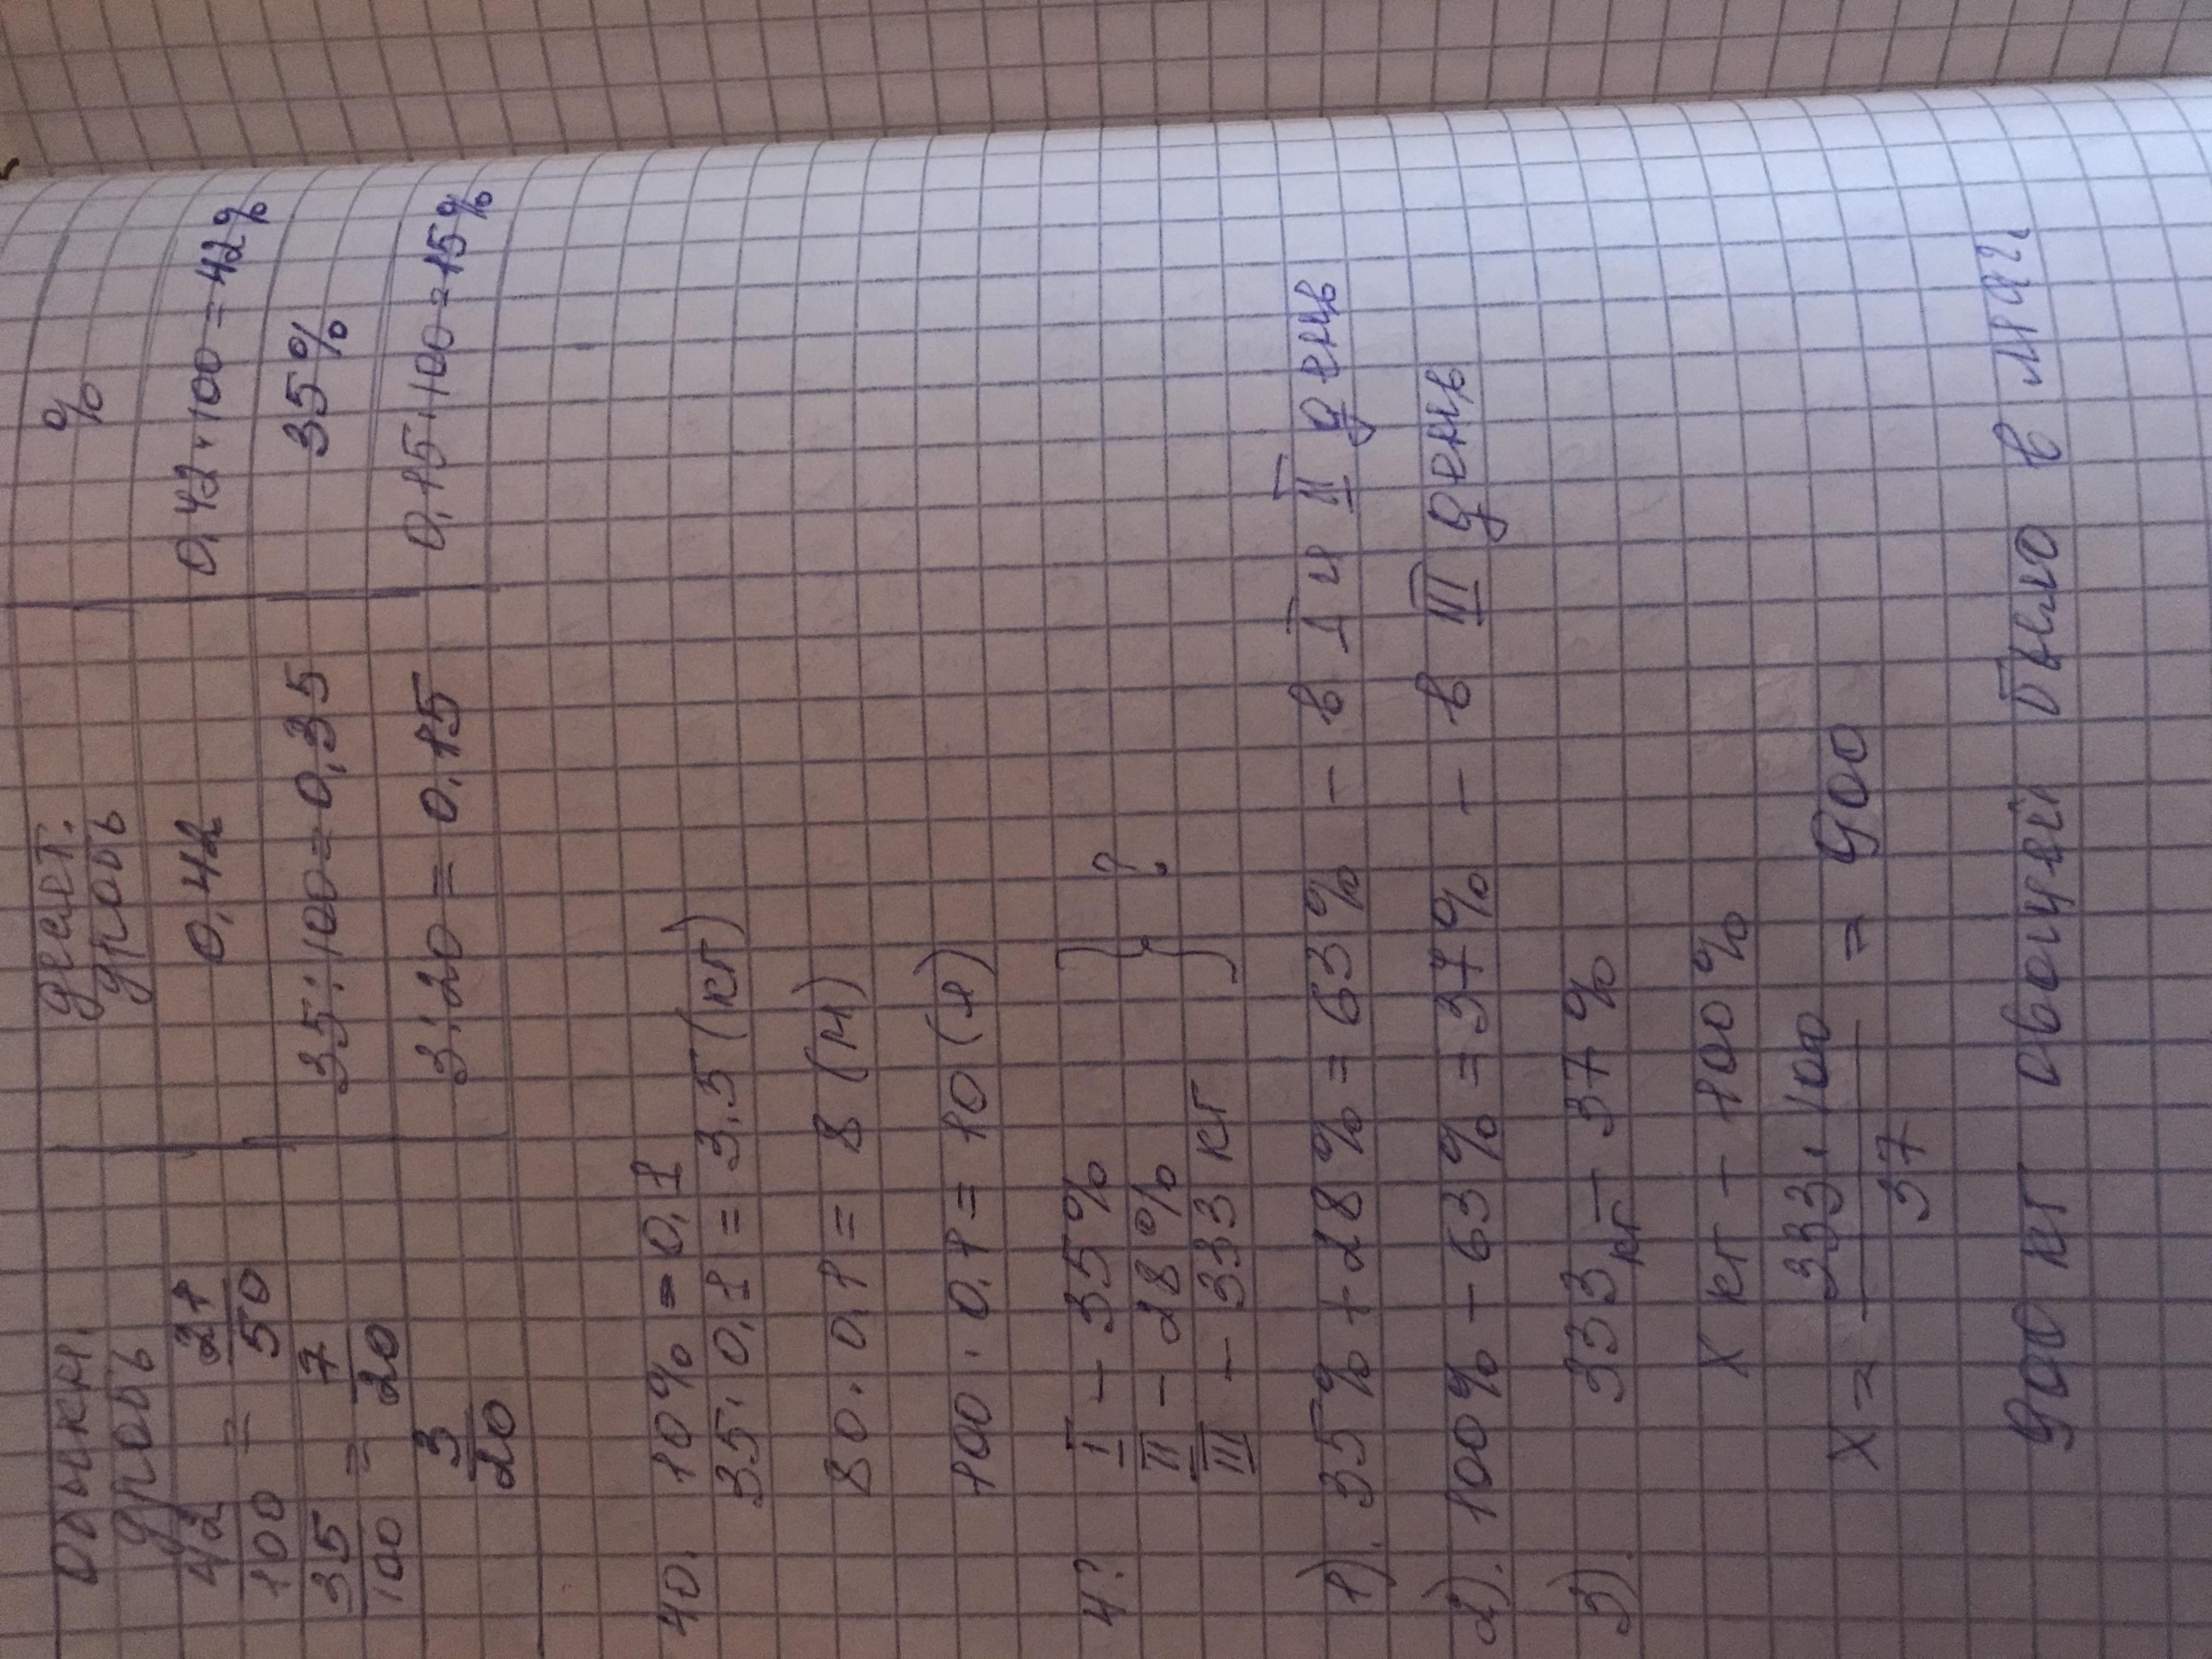 Обыкн. дробь десят. дробь %
42/100 = 21/50 0,42 0,42·100=42%
35/100 = 7/20 35:100=0,35 35%
3/20 3:20=0,15 0,15·100=15%
40. 10% = 0,1
35·0,1 = 3,5 (кг)
80·0,1 = 8 (м)
100·0,1 = 10 (л)
4? I – 35% } ?
II – 28%
III – 333 кг
1). 35% + 28% = 63% – в I и II день
2). 100% – 63% = 37% – в III день
3). 333 кг – 37%
x кг – 100%
x = 333·100/37 = 900
900 кг овощей было в маг.